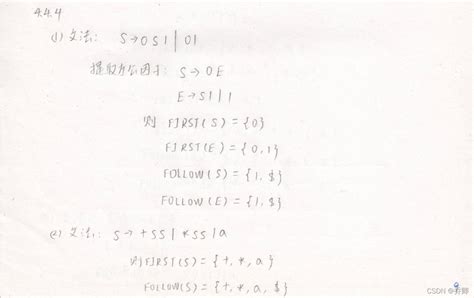 4.4.4
(1) 文法: S→0S1 | 01
提取左公因子: S→0E
E→S1 | 1
则 FIRST(S) = {0}
FIRST(E) = {0,1}
FOLLOW(S) = {1,$}
FOLLOW(E) = {1,$}
(2) 文法: S→+SS | *SS | a
则FIRST(S) = {+,*,a}
FOLLOW(S) = {+,*,a,$}
CSDN